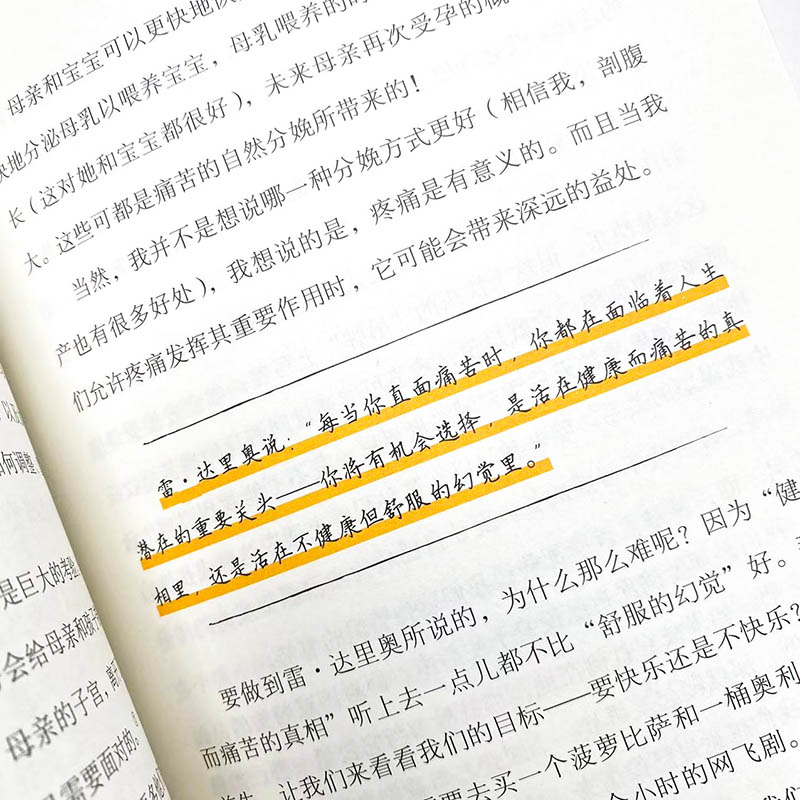 母亲和宝宝可以更快地
快地分泌母乳以喂养宝宝，母乳喂养的时
长（这对她和宝宝都很好），未来母亲再次受孕的概
大。这些可都是痛苦的自然分娩所带来的！
当然，我并不是想说哪一种分娩方式更好（相信我，剖腹
产也有很多好处），我想说的是，疼痛是有意义的。而且当我
们允许疼痛发挥其重要作用时，它可能会带来深远的益处。
雷·达里奥说：“每当你直面痛苦时，你都在面临着人生
潜在的重要关头——你将有机会选择，是活在健康而痛苦的真
相里，还是活在不健康但舒服的幻觉里。”
要做到雷·达里奥所说的，为什么那么难呢？因为“健
而痛苦的真相”听上去一点儿都不比“舒服的幻觉”好。
首先，让我们来看看我们的目标——要快乐还是不快乐？
要去买一个菠萝比萨和一桶奥利
个小时的网飞剧。
何调整
是巨大的考验
会给母亲和孩子
母亲的子宫，离
需要面对的